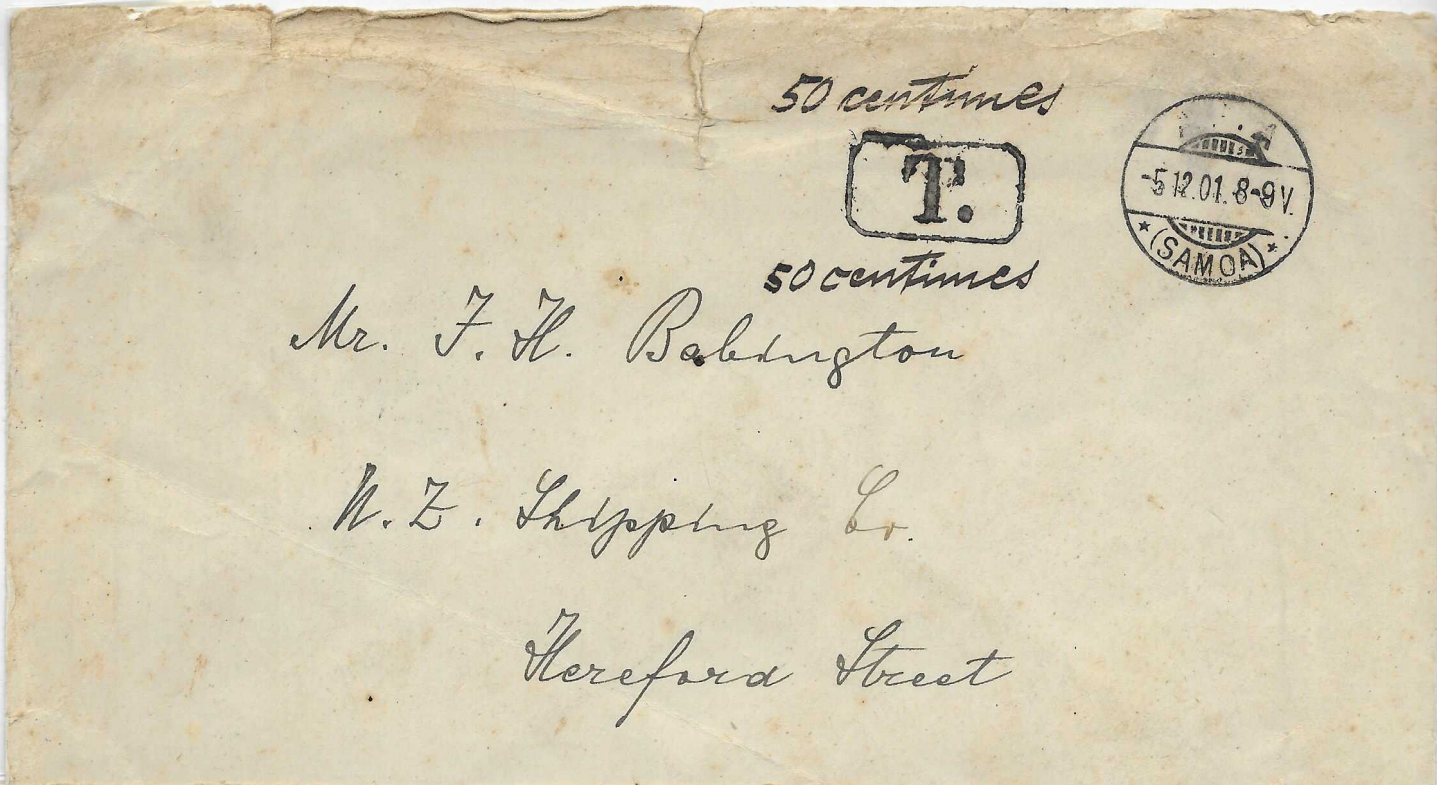 50 centimes
T.
50 centimes
-5.12.01. 8-9V.
* (SAMOA) *
Mr. F. H. Babington
N. Z. Shipping Co.
Hereford Street